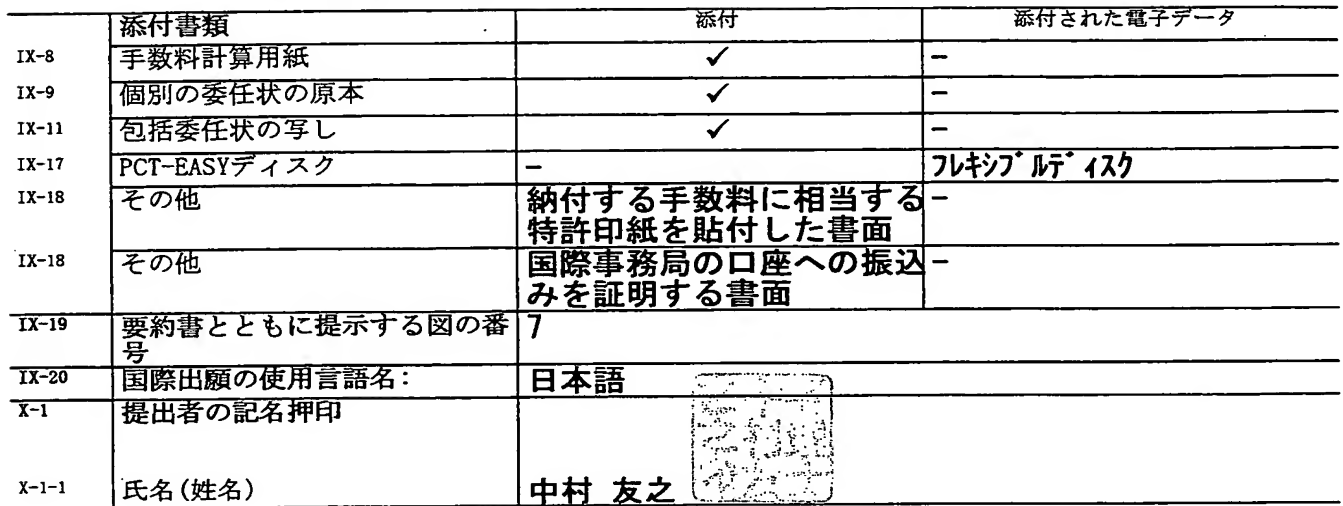 添付書類 添付 添付された電子データ
IX-8 手数料計算用紙 ✓ -
IX-9 個別の委任状の原本 ✓ -
IX-11 包括委任状の写し ✓ -
IX-17 PCT-EASYディスク - フレキシブルディスク
IX-18 その他 納付する手数料に相当する -
特許印紙を貼付した書面
IX-18 その他 国際事務局の口座への振込 -
みを証明する書面
IX-19 要約書とともに提示する図の番 7
号
IX-20 国際出願の使用言語名: 日本語
X-1 提出者の記名押印
X-1-1 氏名(姓名) 中村 友之